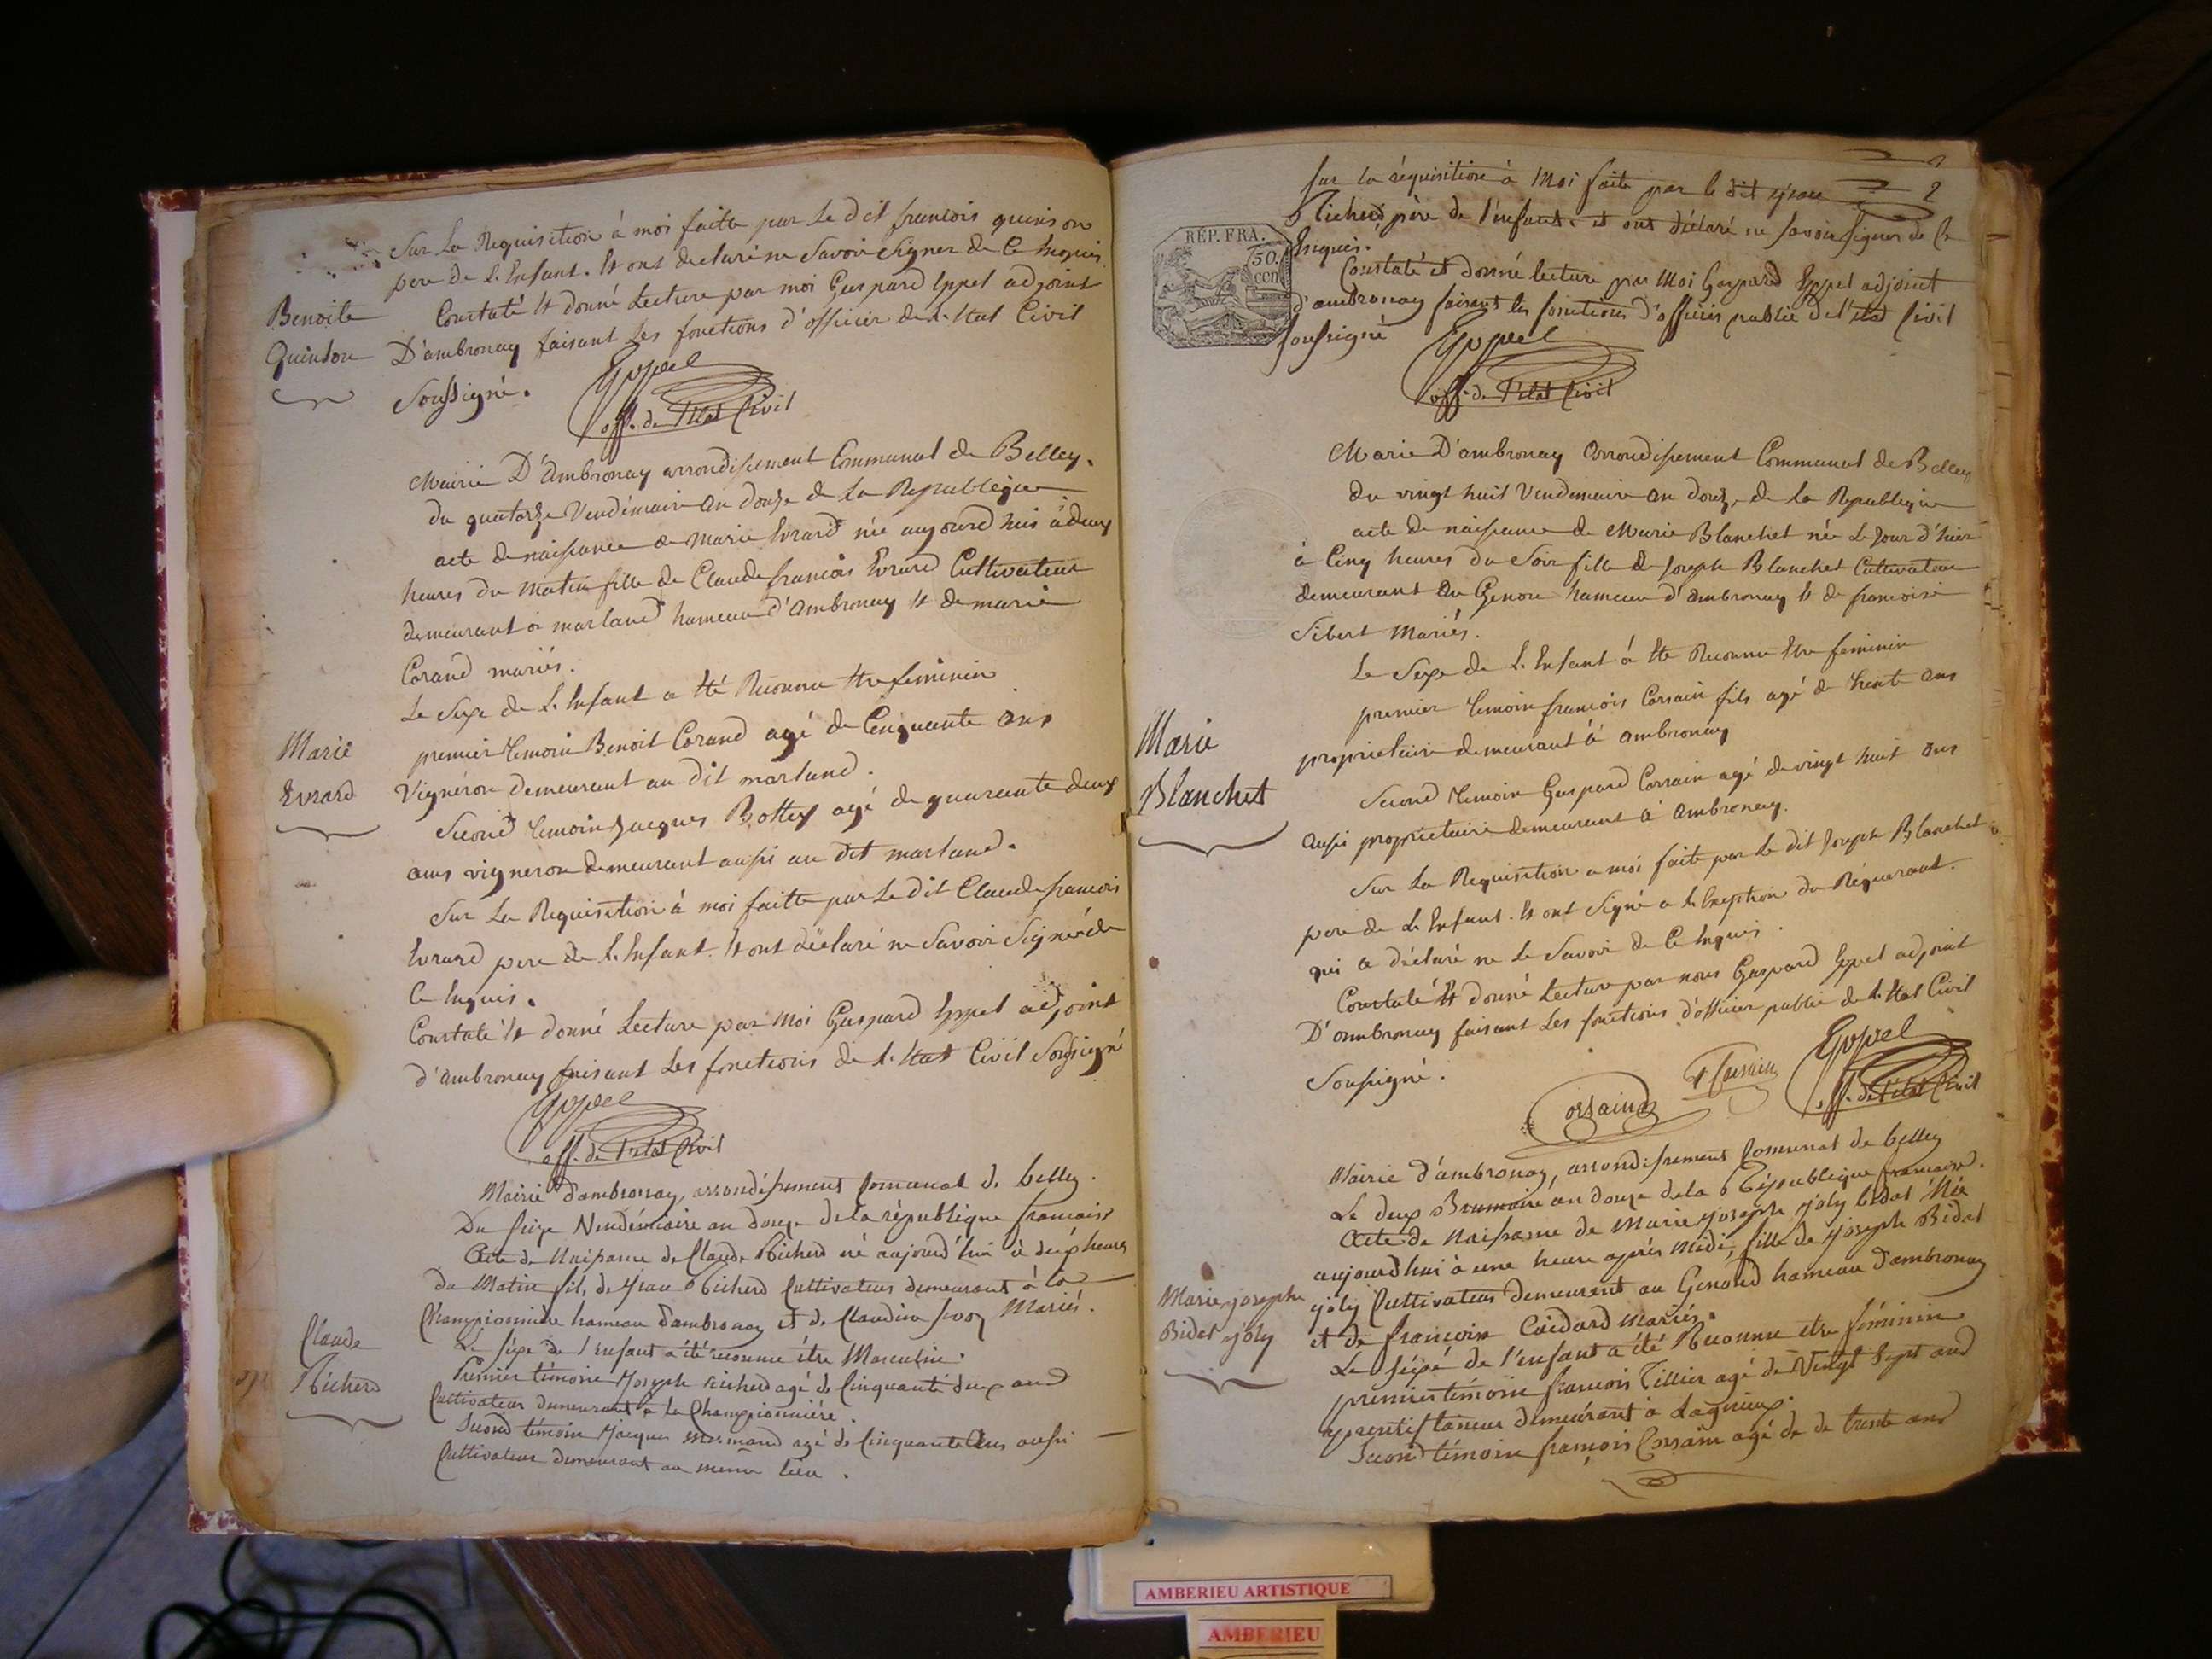 Sur La Requisition à moi faitte par Le Dit francois quinson
pere de L'Enfant. Et ont declaré ne Savoir Signer de Ce Enquis
Constaté Et donné Lecture par moi Gaspard Eppel adjoint
D'ambronay faisant Les fonctions d'officier de L'Etat Civil
Soussigné.
Benoite
Quinson
Eppel
off. de l'Etat Civil
Mairie D'Ambronay arrondissement Communal de Belley.
du quatorze Vendémiaire an douze de La Republique
acte de naissance de Marie Evrard née aujourd'hui à deux
heures du matin fille de Claude francois Evrard Cultivateur
demeurant à marland hameau d'Ambronay Et de marie
Corand mariés.
Le Sexe de L'Enfant a Eté Reconnu Etre feminin
Marie
Evrard
premier temoin Benoit Corand agé de Cinquante ans
Vigneron demeurant au dit marland.
Second temoin Jacques Bottex agé de quarante deux
ans vigneron demeurant aussi au dit marland.
Sur La Requisition à moi faitte par Le Dit Claude francois
Evrard pere de L'Enfant. Et ont déclaré ne Savoir Signer de
Ce Enquis.
Constaté Et donné Lecture par Moi Gaspard Eppel adjoint
d'ambronay faisant Les fonctions de L'Etat Civil Soussigné
Eppel
off. de l'Etat Civil
Mairie d'ambronay, arrondissement Communal de belley.
Du Seize Vendémiaire an douze de la république francaise
Acte de Naissance de Claude Richerd né aujourd'hui à heures
du Matin fils de Jean Richerd Cultivateur demeurant à la
Championnière hameau d'ambronay et de Claudine Mariés.
Le sexe de l'enfant a été reconnu être Masculin.
Claude
Richerd
Premier témoin Joseph richerd agé de Cinquante deux ans
Cultivateur demeurant a la Championnière.
Second témoin Jacques mermand agé de Cinquante Ans aussi
Cultivateur demeurant au meme lieu.
2
Sur la réquisition à Moi faite par le dit Jean
Richerd père de l'enfant. et ont déclaré ne savoir signer de Ce
Enquis.
RÉP. FRA.
50.
cen
Constaté et donné lecture par Moi Gaspard Eppel adjoint
d'ambronay faisant les fonctions d'officier public de l'état Civil
soussigné
Eppel
off. de l'Etat Civil
Mairie D'ambronay Arrondissement Communal de Belley
du vingt huit Vendemiaire an douze de La Republique
acte de naissance de Marie Blanchet née Le Jour d'hier
à Cinq heures du Soir fille de Joseph Blanchet Cultivateur
demeurant Au Genou hameau d'ambronay Et de francoise
Sibert Mariés.
Le Sexe de L'Enfant à Eté Reconnu Etre feminin
premier temoin francois Corsain fils agé de trente ans
proprietaire demeurant à ambronay
Marie
Blanchet
Second temoin Gaspard Corsain agé de vingt huit ans
aussi proprietaire demeurant à Ambronay.
Sur La Requisition a moi faite par Le dit Joseph Blanchet
pere de L'Enfant. Et ont Signé a L'Exeption du Réquerant.
qui a déclaré ne Le Savoir de Ce Enquis.
Constaté Et donné Lecture par nous Gaspard Eppel adjoint
D'ambronay faisant Les fonctions d'officier public de L'Etat Civil
Soussigné.
Corsain
f Corsain
Eppel
off. de l'Etat Civil
Mairie d'ambronay, arrondissement Communal de belley
Le deux Brumaire an douze de la République francaise.
Acte de Naissance de Marie Joseph Joly bidat Née
aujourd'hui à une heure après Midi, fille de Joseph Bidat
Joly Cultivateur demeurant au Genoud hameau d'ambronay
et de francoise Caidard Mariés.
Marie joseph
Bidat joly
Le Séxe de l'enfant a été Reconnu etre féminin
premier témoin francois Tillier agé de Vingt Sept ans
aprentif taneur demeurant à Lagnieux.
Second témoin francois Corsain agé de de trente ans
AMBERIEU ARTISTIQUE
AMBERIEU